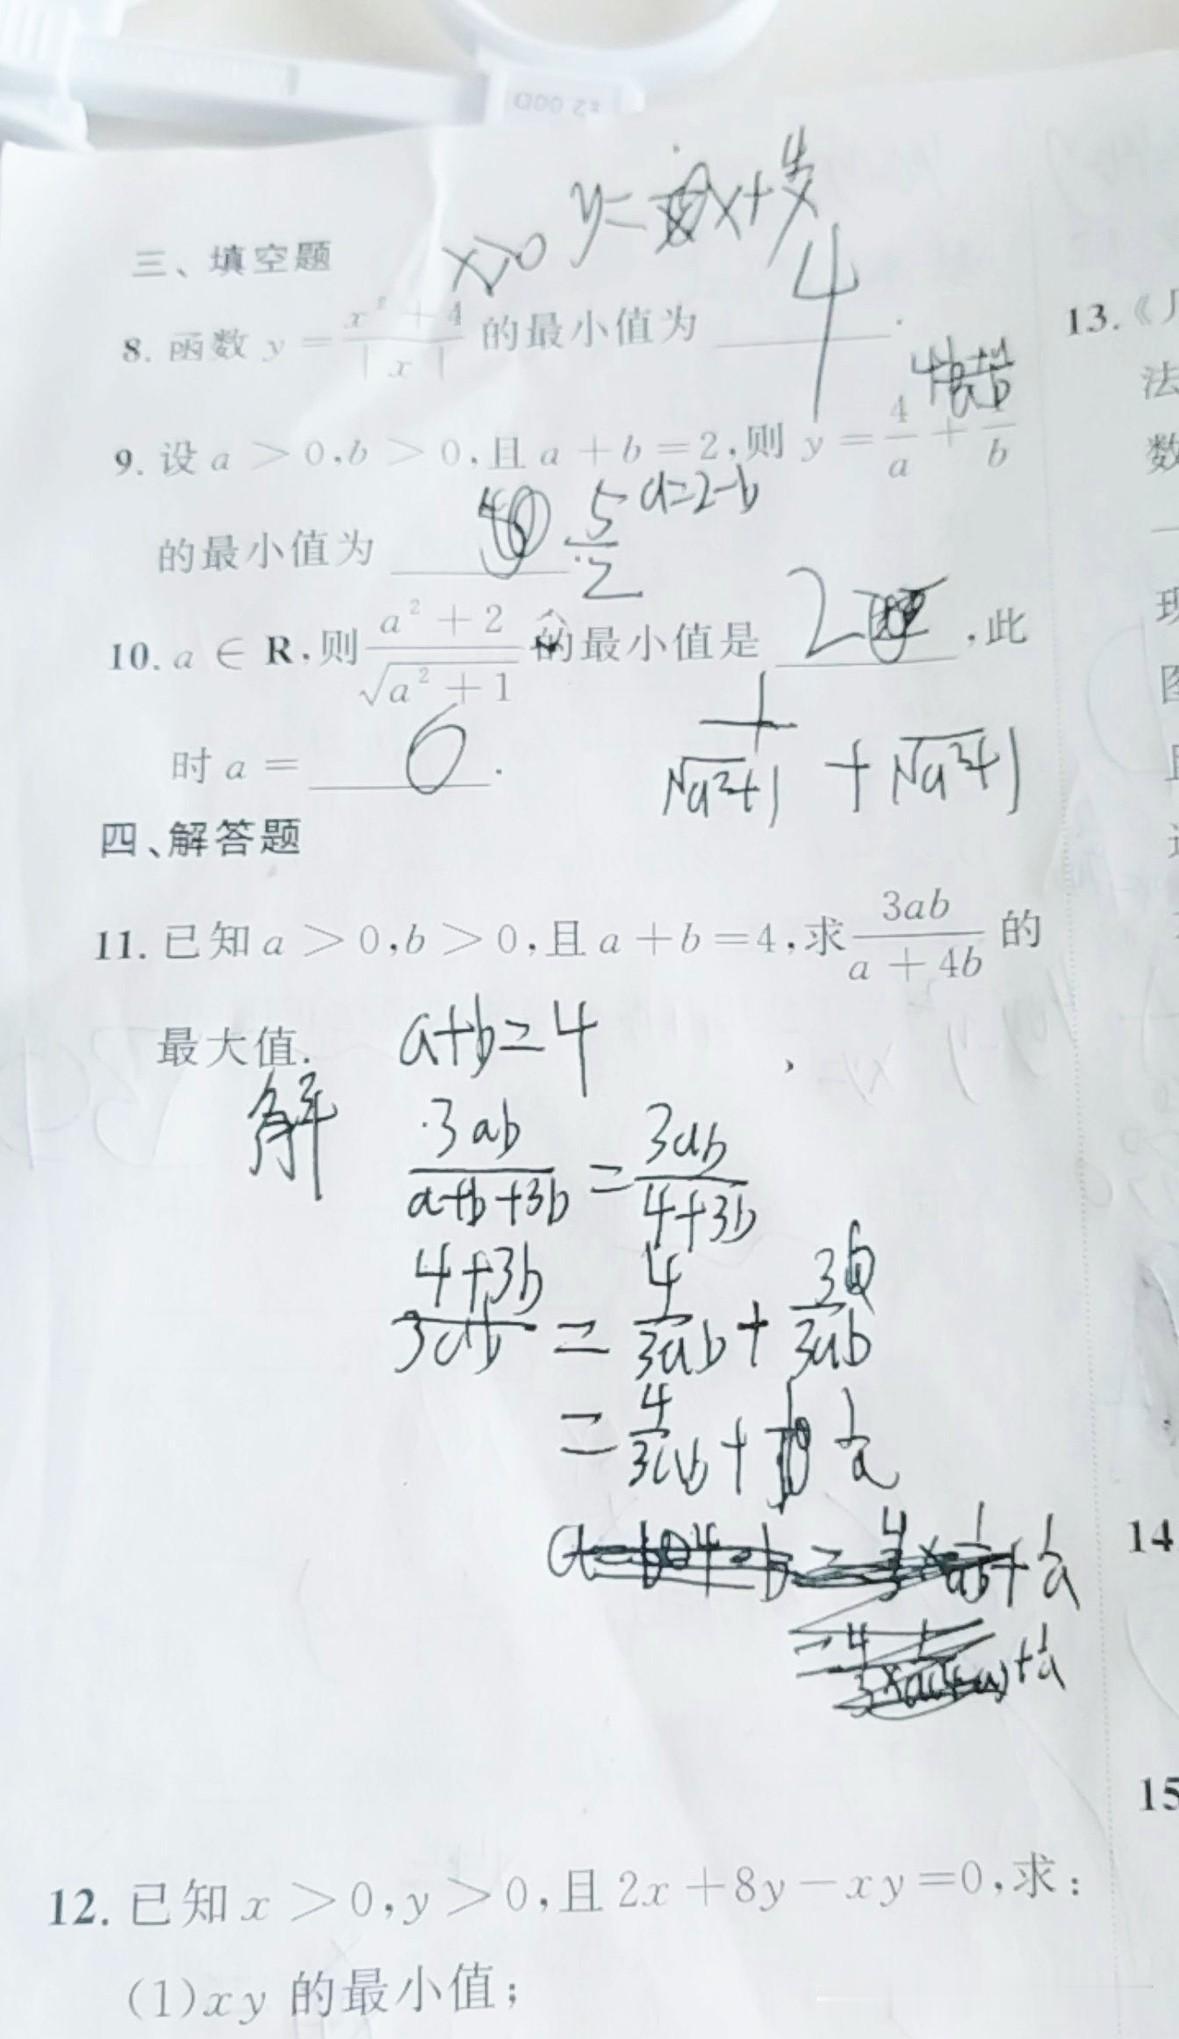 x>0 y=x+4/x
三、填空题
8. 函数 y = (x²+4)/|x| 的最小值为 4 .
9. 设 a > 0,b > 0,且 a + b = 2,则 y = 4/a + 1/b
a=2-b
的最小值为 5/2
10. a ∈ R,则 (a²+2)/√(a²+1) 的最小值是 2 ,此
时 a = 0 .
1/√(a²+1) + √(a²+1)
四、解答题
11. 已知 a > 0,b > 0,且 a + b = 4,求 3ab/(a+4b) 的
最大值.
a+b=4
解
3ab/(a+b+3b) = 3ab/(4+3b)
(4+3b)/3ab = 4/3ab + 3b/3ab
= 4/3ab + 1/a
12. 已知 x > 0,y > 0,且 2x + 8y - xy = 0,求:
(1)xy 的最小值;
13.《
法
数
现
图
14
15